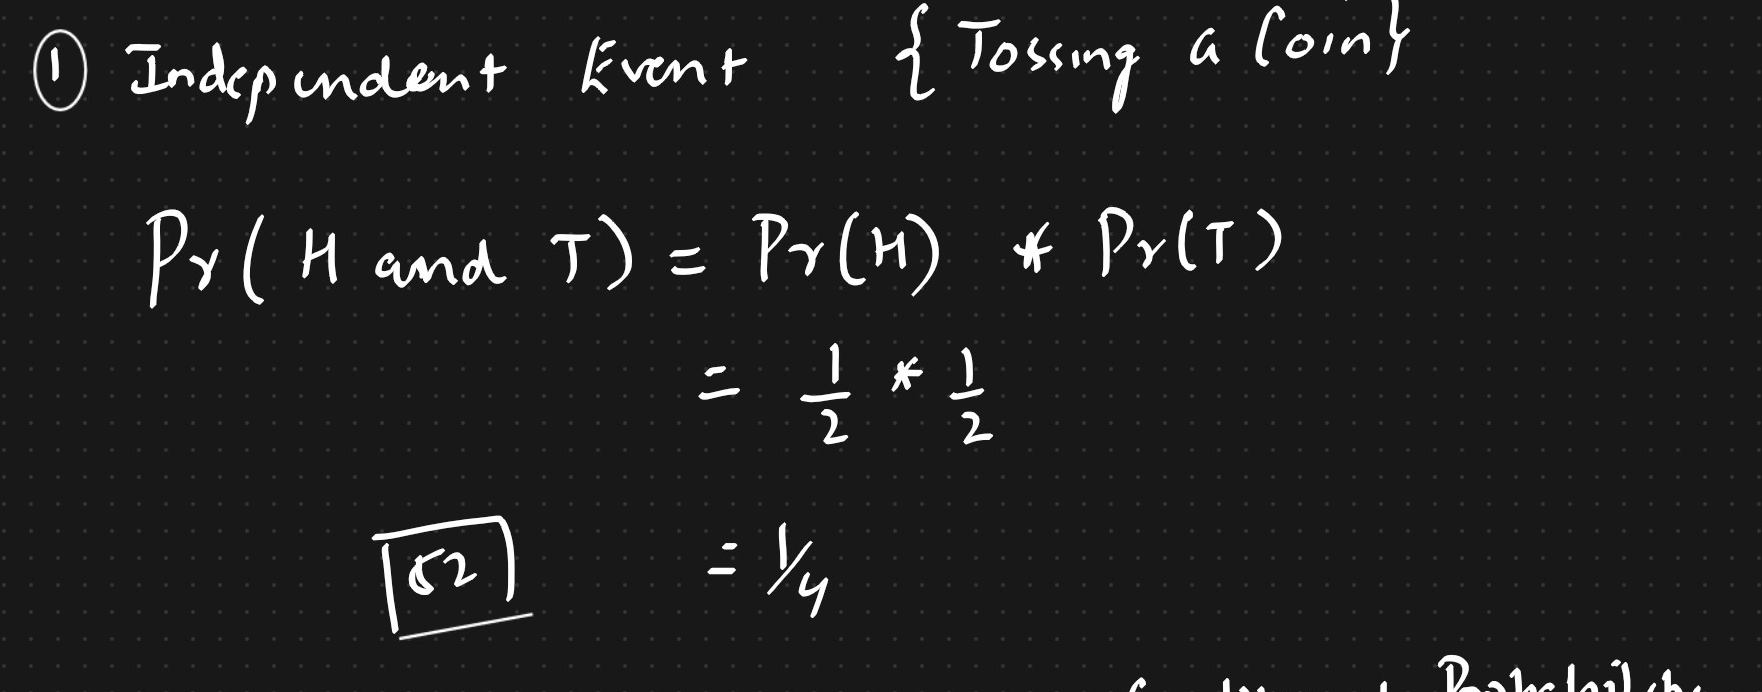 ① Independent Event { Tossing a Coin}
Pr( H and T) = Pr(H) * Pr(T)
= 1/2 * 1/2
52 = 1/4
Probability